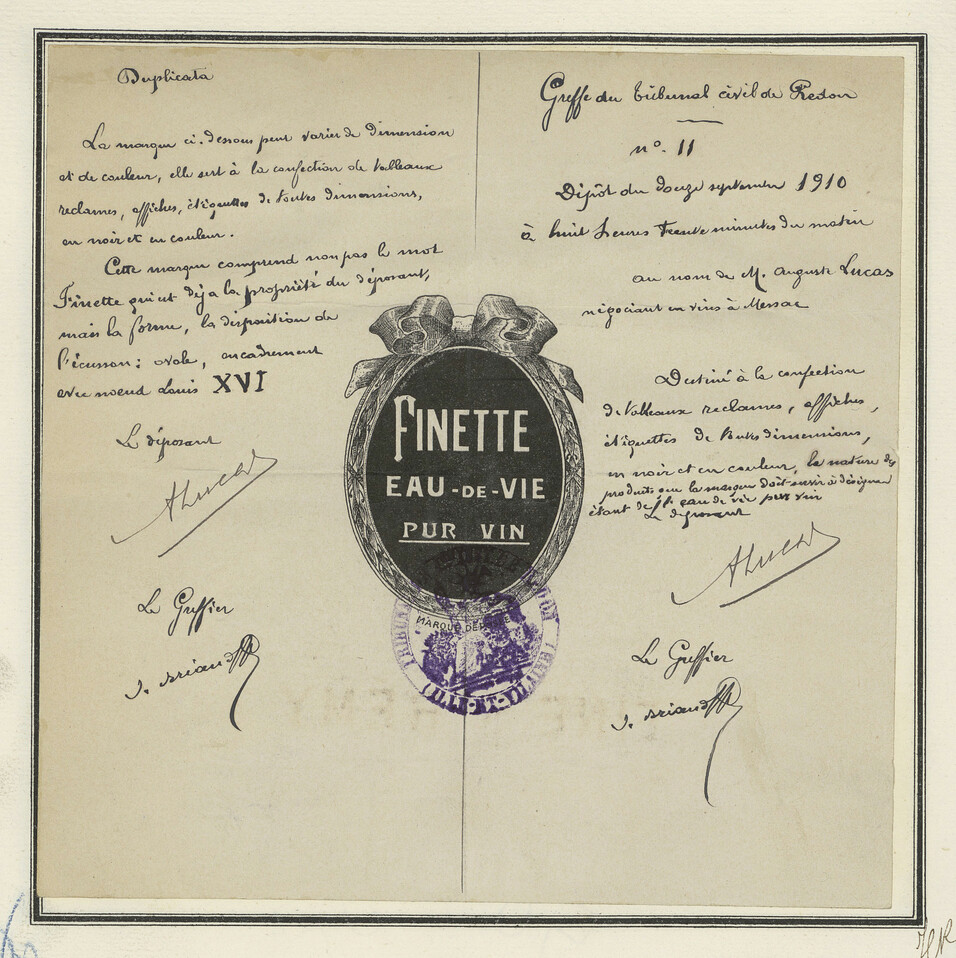 Duplicata
La marque ci-dessous peut varier de dimension
et de couleur, elle sert à la confection de tableaux
reclames, affiches, étiquettes de toutes dimensions,
en noir et en couleur.
Cette marque comprend non pas le mot
Finette qui est déja la propriété du déposant,
mais la forme, la disposition de
l'écusson: ovale, encadrement
avec noeud Louis XVI
Le déposant
ALucas
Le Greffier
J. Briand
Greffe du tribunal civil de Redon
n°. 11
Dépôt du douze septembre 1910
à huit heures trente minutes du matin
au nom de M. Auguste Lucas
négociant en vins à Messac
Destiné à la confection
de tableaux reclames, affiches,
étiquettes de toutes dimensions,
en noir et en couleur, la nature des
produits que la marque doit servir à désigner
étant de l'eau de vie pur vin
Le déposant
ALucas
Le Greffier
J. Briand
FINETTE
EAU-DE-VIE
PUR VIN
MARQUE DÉPOSÉE
TRIBUNAL
REDON
ILLE-ET-VILAINE